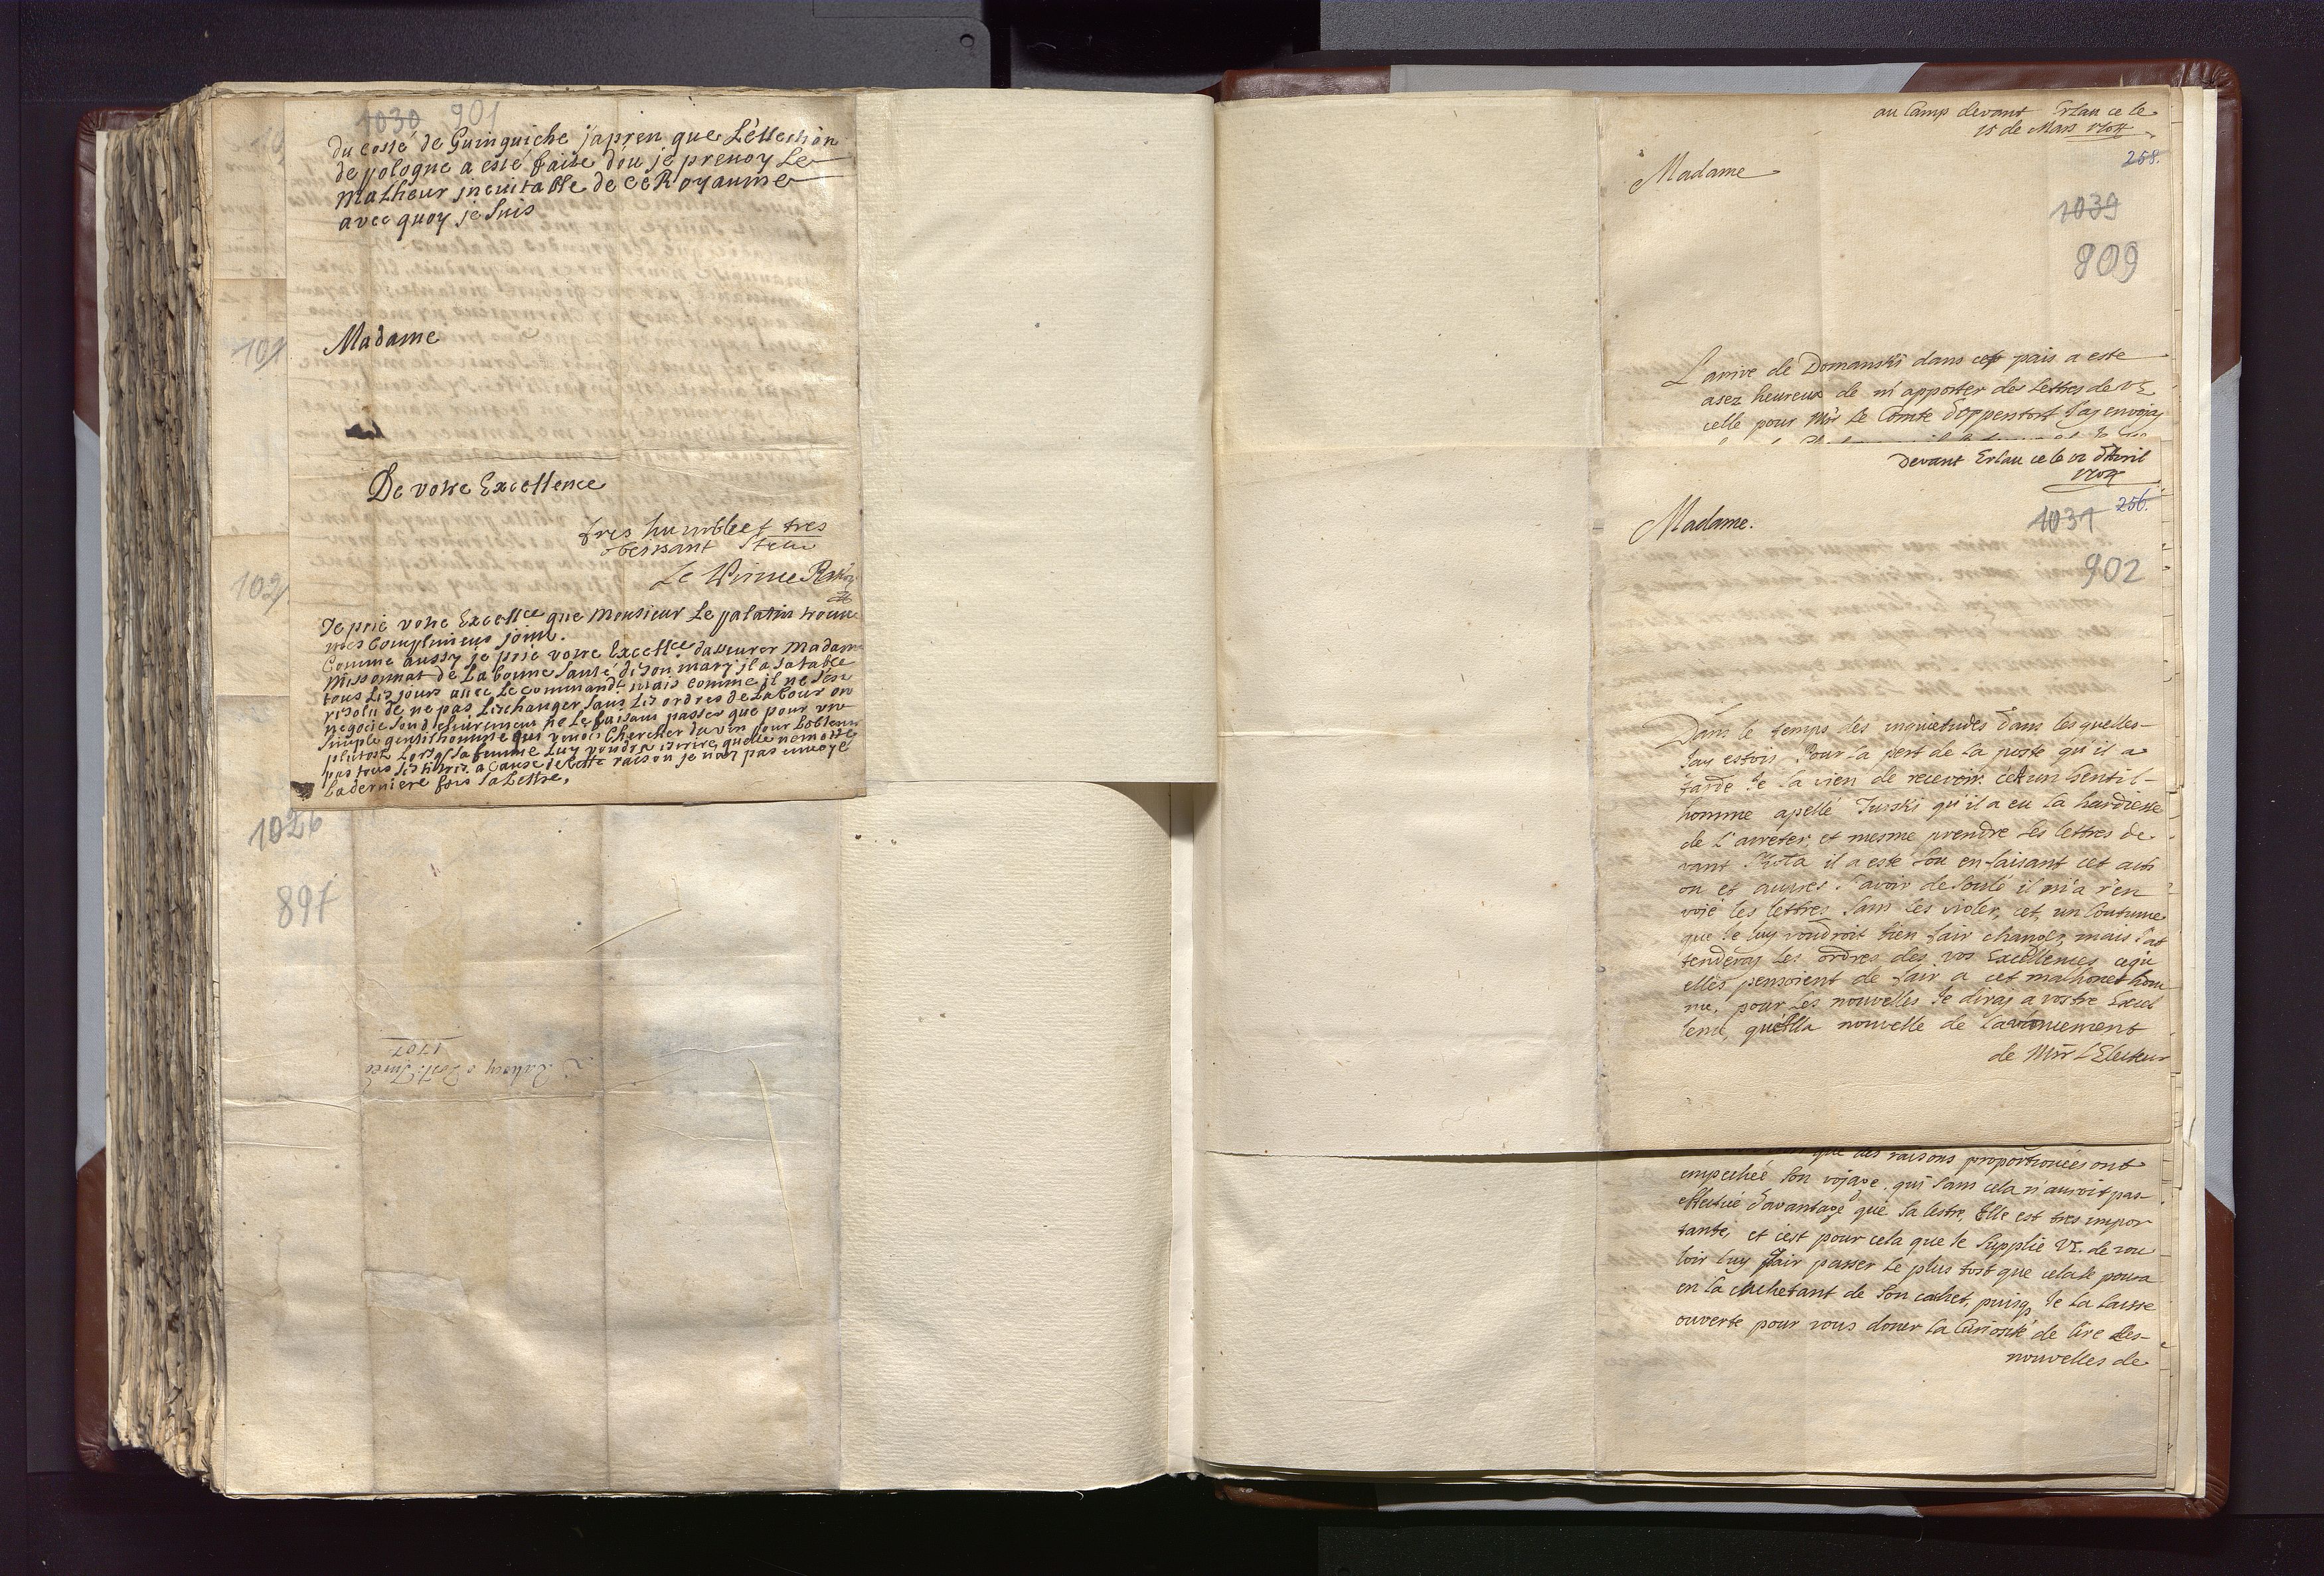 1030 901
du costé de Guinguiche j'apren que L'éllection
de pologne a esté faite d'ou je prenoy Le
malheur jneuitable de ce Royaume
avec quoy je suis
Madame
De votre Excellence
tres humble et tres
obeissant
Le Prince
Je prie votre Excellce que Monsieur Le palatin trouve
mes Complimens joins.
Comme aussy je prie votre Excellce dasseurer Madame
Missonnat de La bonne santé di son mary il a sa table
tous Lis jours avec Le Commandt mais comme il ne s'est
risolu de ne pas Lischanger sans Lis ordres de La Cour on
negocie
simple gentilhomme qui venoit Chercher du vin pour
plutost Lorsq sa femme Luy voudra escrire quelle ne mette
pas tous Lis titres a Cause de cette raison je nay pas envoyé
La derniere fois sa Lettre.
101
102
1026
897
Rakocy
1707
au Camp devant Erlau ce le
15 de Mars 1704
258.
Madame
1039
809
L'arive de Domanski dans cet pais a este
asez heureux de m'apporter des lettres de VE
celle pour Mr Le Comte d'Oppenstort J'ay envoyay
devant Erlau ce le 12 d'Avril
1704
256.
Madame.
1031
902
Dans le temps des inquietudes dans les quelles
J'ay estois Pour la pert de la poste qu'il a
tarde Je la vien de recevoir. cet un Gentil-
homme apellé Turski qu'il a eu la hardiesse
de l'arreter, et mesme prendre les lettres de
vant il a este fou en faisant cet acti
on et aupres s'avoir desoulé il m'a r'en
voié les lettres sans les violer, cet, un Coutume
que Je luy voudroit bien fair changer, mais J'at
tenderay les ordres des vos Excellences ce qu
elles pensoient de fair a cet malhonet hom
me, pour les nouvelles Je diray a vostre Excel
lence, qu'Ella nouvelle de
de Mr L'Electeur
que des raisons proportionées ont
empechée son vojage. qui sans cela n'auroit pas
effectué d'avantage que sa lestre, Elle est tres impor
tante, et c'est pour cela que Je supplie VE. de vou
loir luy fair passer le plus tost que cela se poura
en la cachetant de son cachet, puisq Je la laisse
ouverte pour vous doner la Curiosité de lire les
nouvelles de